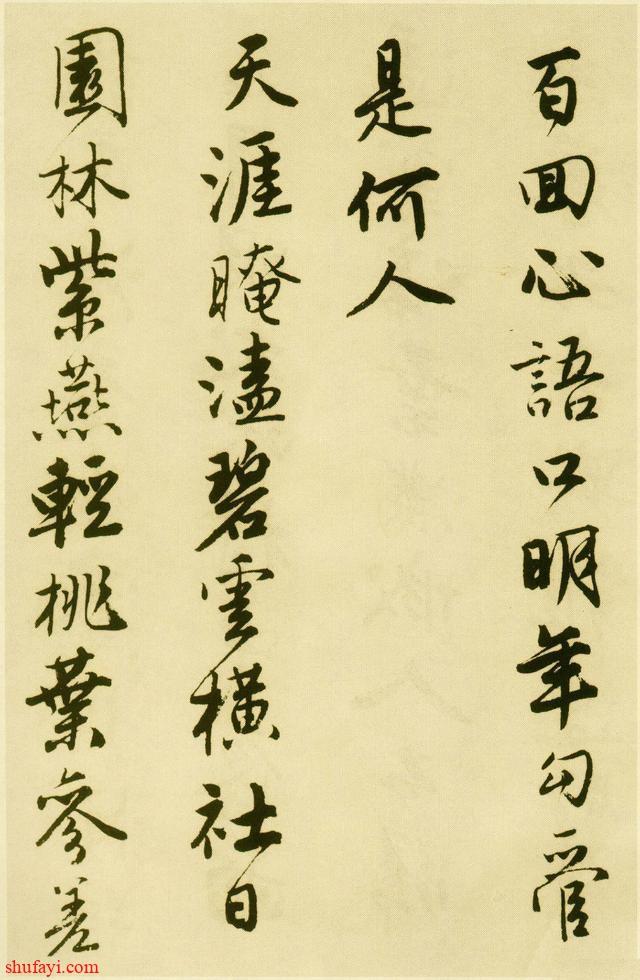 百回心語口明年勾管
是何人
天涯晻溘碧雲橫社日
園林紫燕輕桃葉參差
shufayi.com